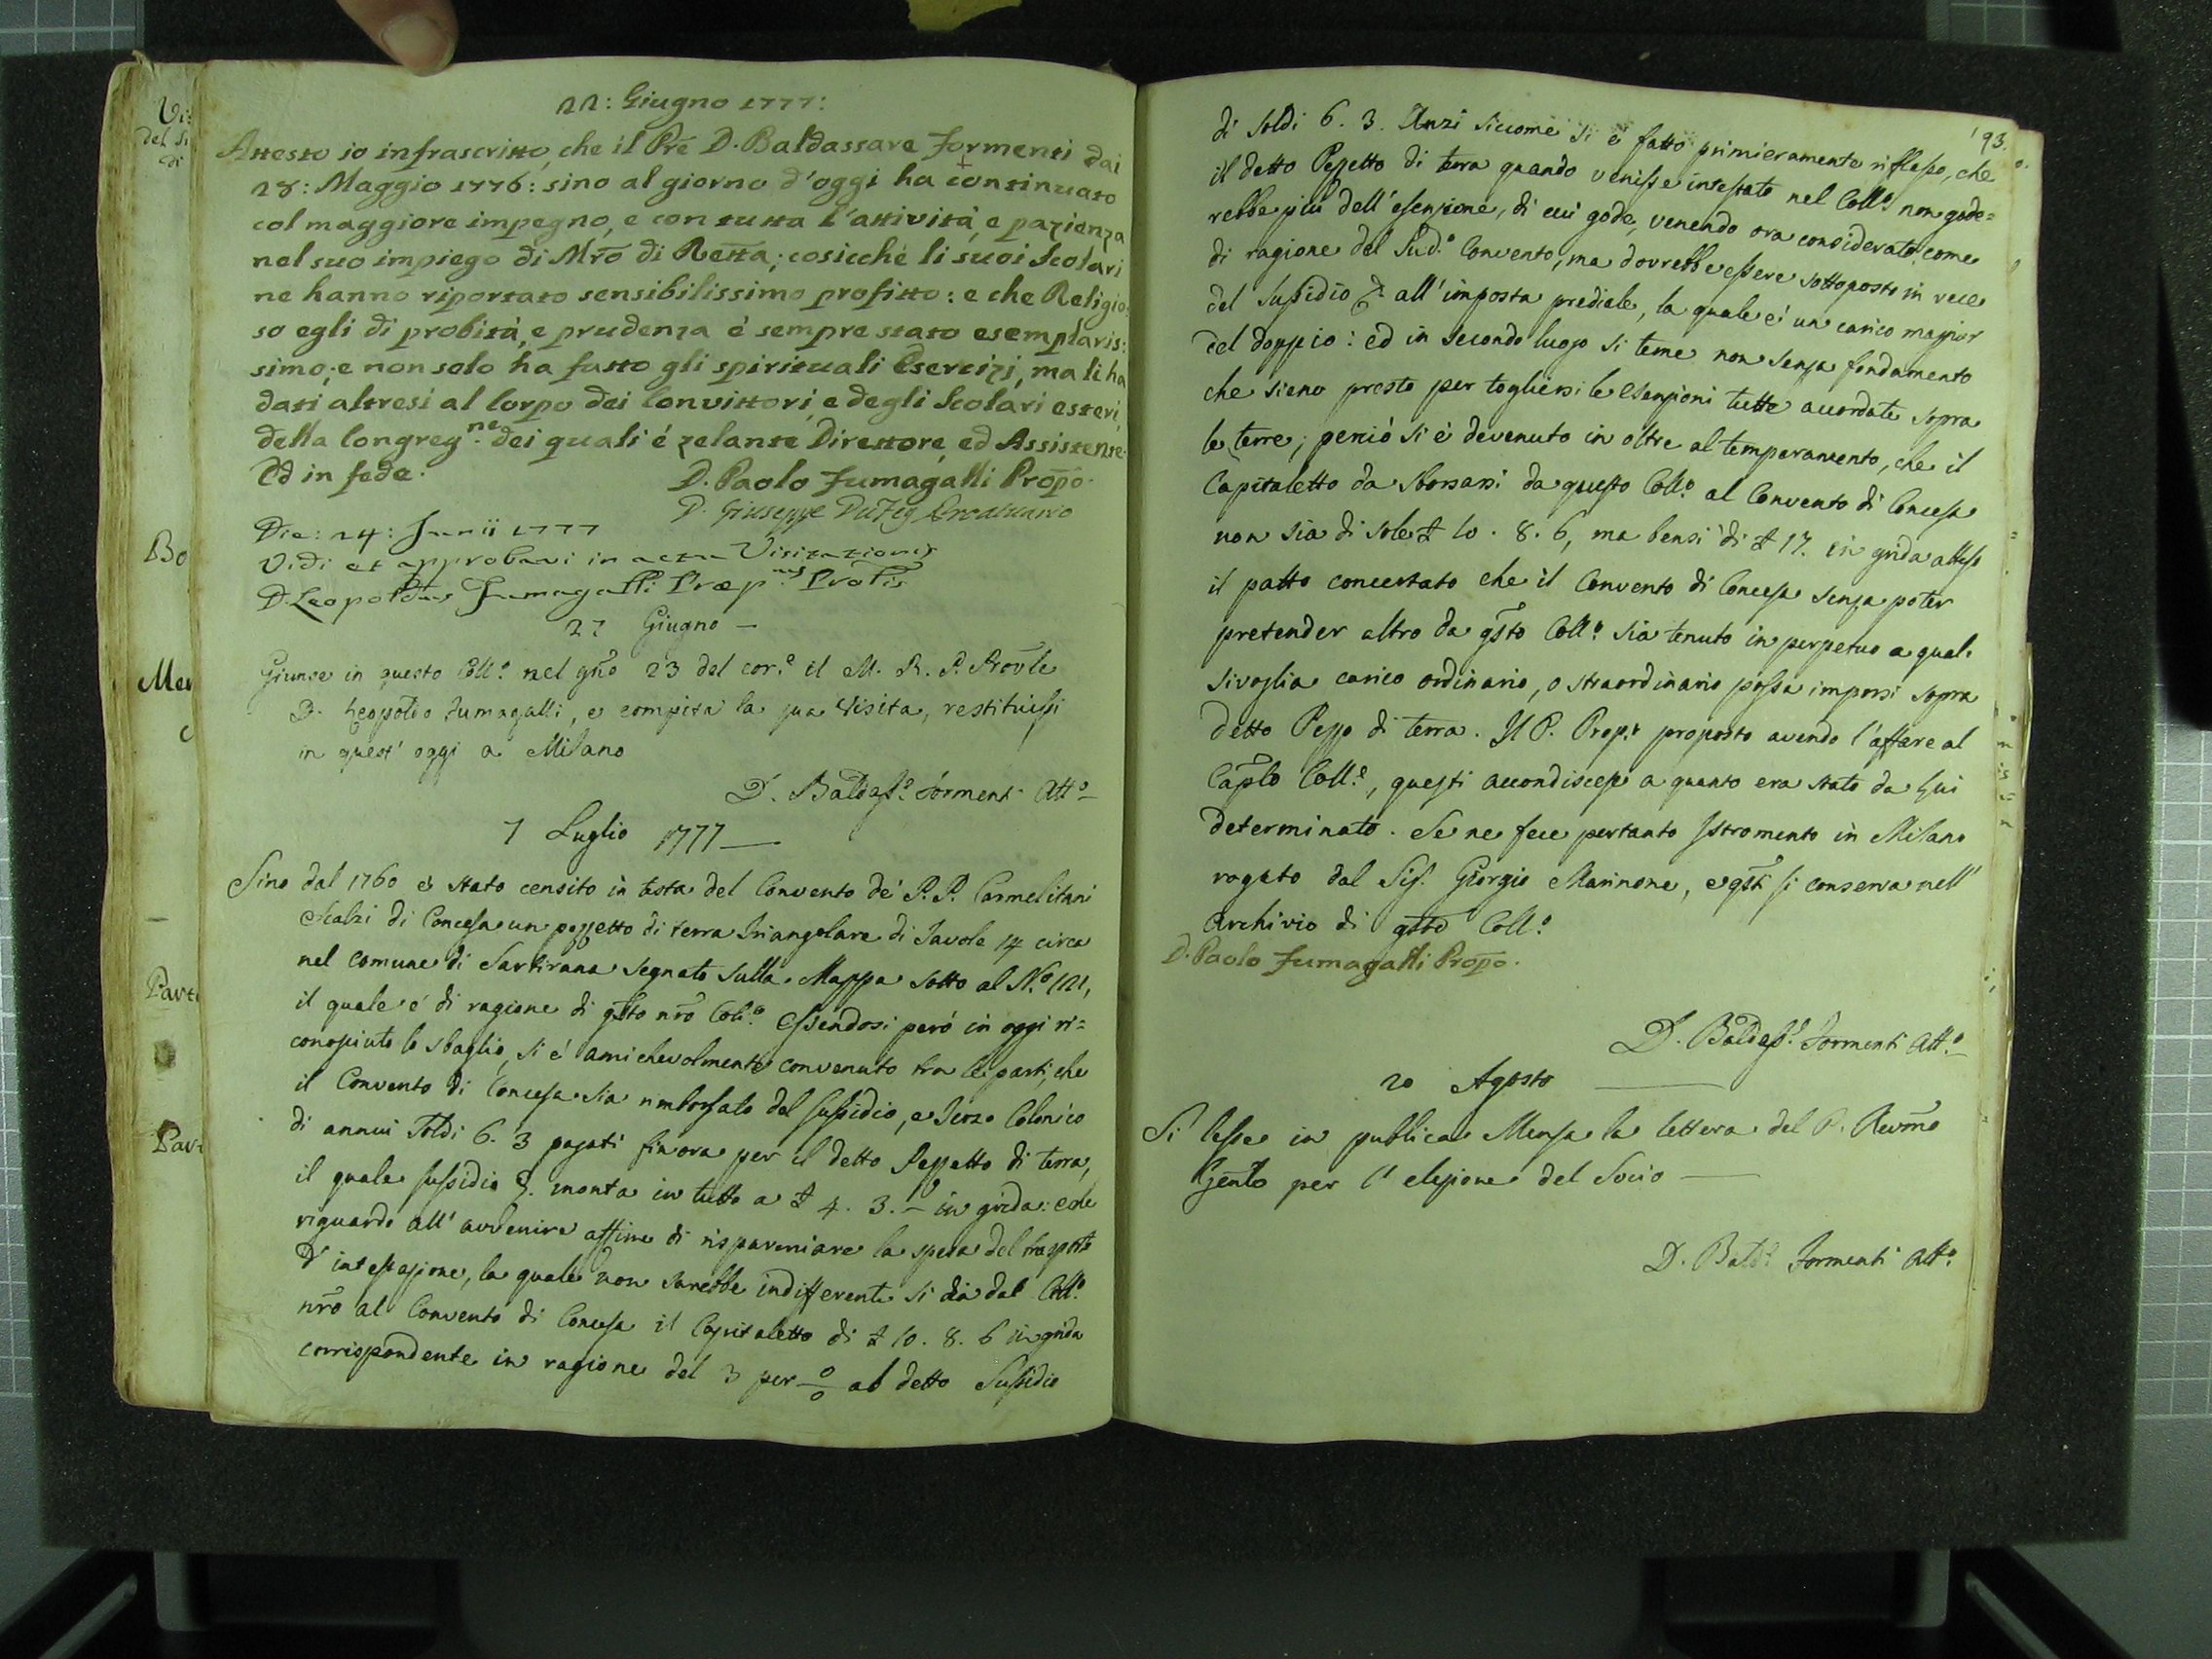 22: Giugno 1777:
Attesto io infrascritto, che il Prē D. Baldassare Formenti dai
28: Maggio 1776: sino al giorno d'oggi ha continuato
col maggiore impegno, e con tutta l'attività, e pazienza
nel suo impiego di Mrō di Retta; cosicché li suoi Scolari
ne hanno riportato sensibilissimo profitto: e che Religio=
so egli di probità, e prudenza é sempre stato esemplaris:
simo; e non solo ha fatto gli spirituali Esercizj, ma li ha
dati altresi al Corpo dei Convittori, e degli Scolari esteri,
della Congreg.ne dei quali é zelante Direttore, ed Assistente.
Ed in fede:
D. Paolo Fumagalli Propo.
D. Giuseppe
Die: 24: Junii 1777
Vidi et approbavi in actu Visitationis
D. Leopoldus Fumagalli Præp.tus Prolis
27 Giugno —
Giunse in questo Coll.o nel gno 23 del cor.e il M. R. P. Provle
D. Leopoldo Fumagalli, e compita la sua Visita, restituissi
in quest' oggi a Milano
D. Baldass.e Formenti Att.o —
7 Luglio 1777 —
Sino dal 1760 è stato censito in testa del Convento de' P.P. Carmelitani
Scalzi di Concesa un pezzetto di terra triangolare di Tavole 14 circa
nel Comune di Sartirana segnato sulla Mappa sotto al N.o 121,
il quale é di ragione di qsto nrō Coll.o Essendosi però in oggi ri=
conosciuto lo sbaglio, si é amichevolmente convenuto tra le parti, che
il Convento di Concesa sia rimborsato del sussidio, e Terzo Colonico
di annui Soldi 6. 3 pagati finora per il detto Pezzetto di terra,
il quale sussidio monta in tutto a £ 4. 3. — in grida: e che
riguardo all' avvenire affine di risparmiare la spesa del trasporto
d' intestazione, la quale non sarebbe indifferente si dia dal Coll.o
nrō al Convento di Concesa il Capitaletto di £ 10. 8. 6 in grida
corrispondente in ragione del 3 per o/o al detto Sussidio
193.
di soldi 6. 3. Anzi siccome si è fatto primieramente riflesso, che
il detto Pezzetto di terra quando venisse intestato nel Coll.o non gode=
rebbe più dell' esenzione, di cui gode, venendo ora considerato come
di ragione del Sud.o Convento, ma dovrebbe essere sottoposto in vece
del Sussidio all' imposta prediale, la quale é un carico maggior
del doppio: ed in secondo luogo si teme non senza fondamento
che sieno presto per togliersi le esenzioni tutte accordate sopra
le terre; perciò si è devenuto in oltre al temperamento, che il
Capitaletto da sborsarsi da questo Coll.o al Convento di Concesa
non sia di sole £ 10. 8. 6, ma bensì di £ 17. in grida atteso
il patto concertato che il Convento di Concesa senza poter
pretender altro da qsto Coll.o sia tenuto in perpetuo a qual=
sivoglia carico ordinario, o straordinario possa imporsi sopra
detto Pezzo di terra. Il P. Prop.to proposto avendo l'affare al
Caplo Coll.e, questi accondiscese a quanto era stato da Lui
determinato. Se ne fece pertanto Istromento in Milano
rogato dal Sig. Giorgio Marinone, e qsti si conserva nell'
Archivio di qsto Coll.o
D. Paolo Fumagalli Propo.
D. Baldass.e Formenti Att.o —
20 Agosto —
Si lesse in publica Mensa la lettera del P. Revmo
Genle per l' elezione del Socio —
D. Bald.e Formenti Att.o